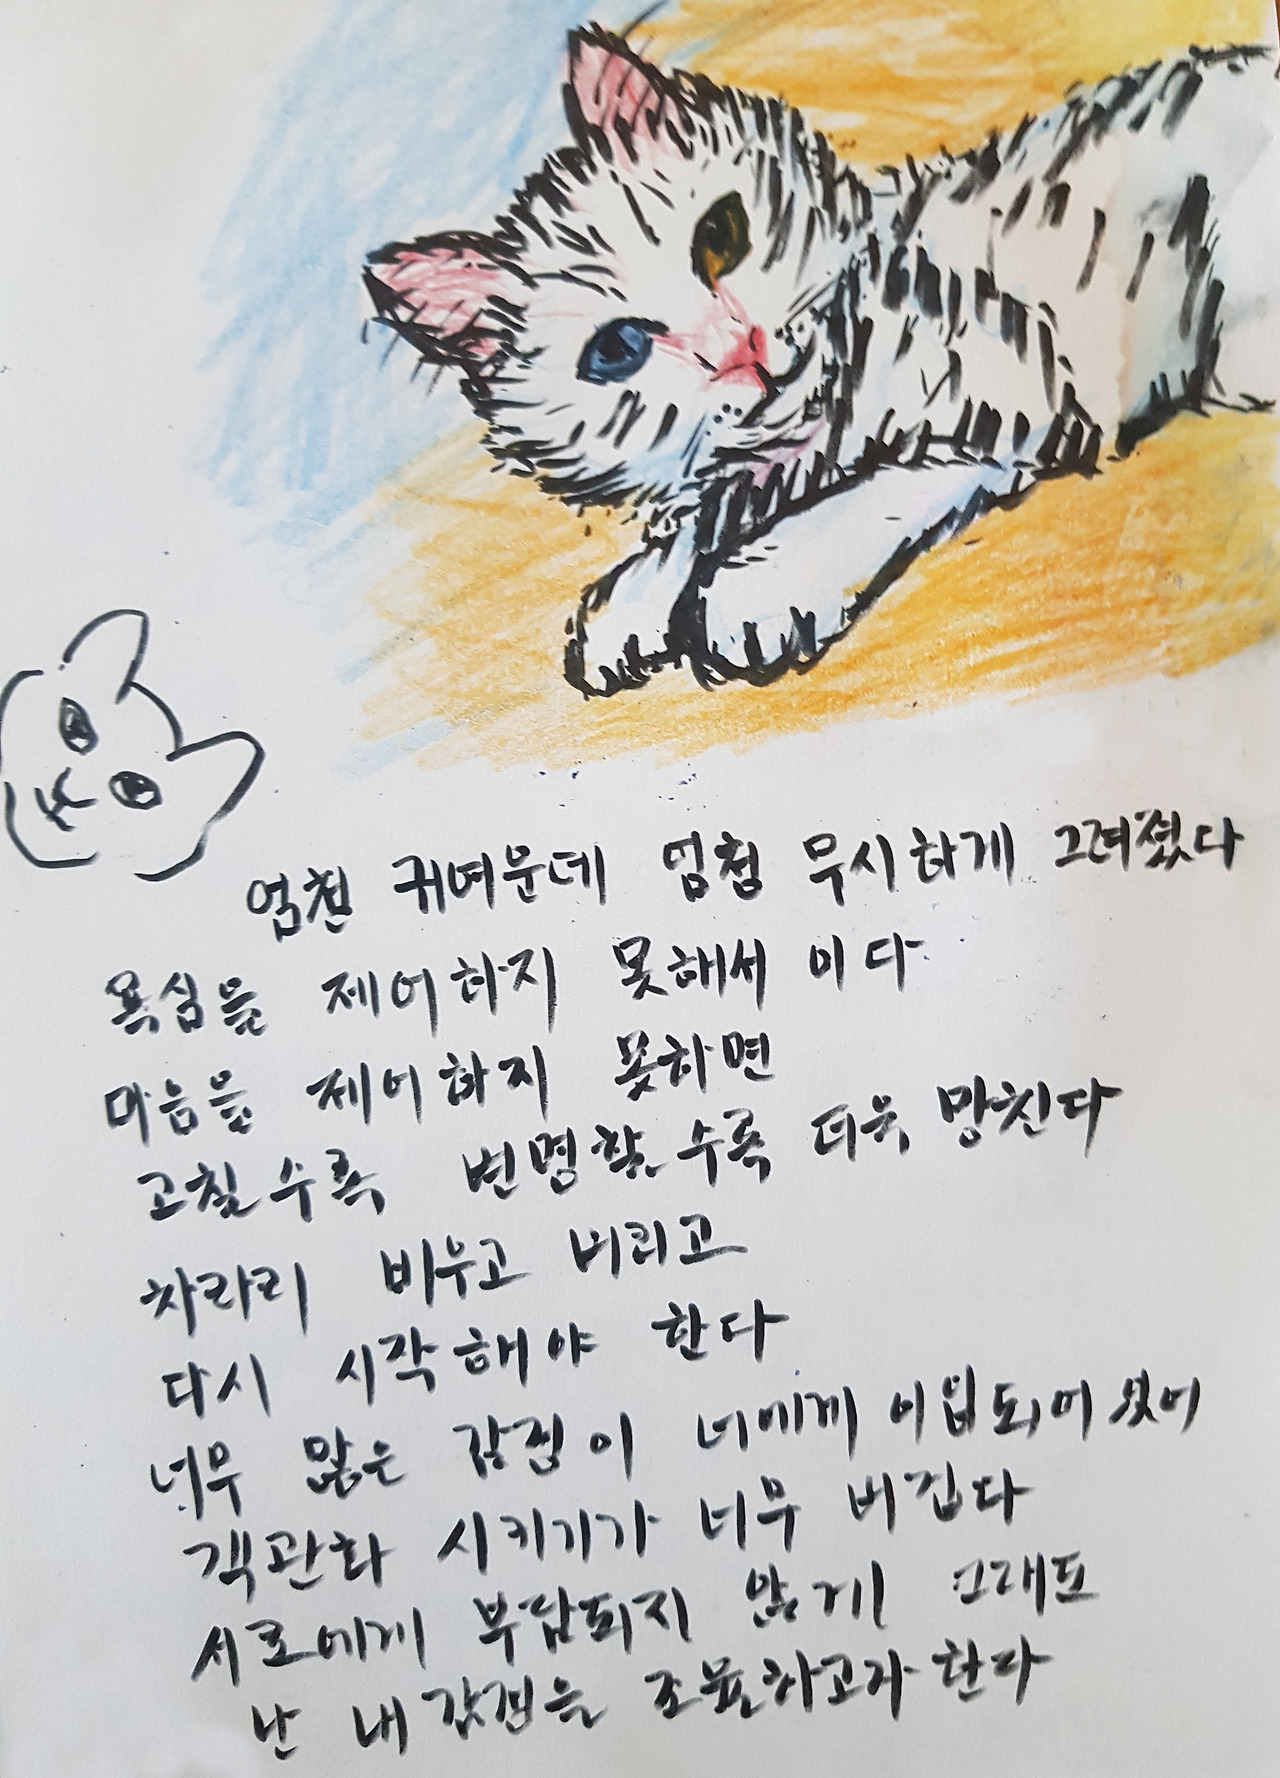 엄청 귀여운데 엄청 무시하게 그려졌다
욕심을 제어하지 못해서 이다
마음을 제어하지 못하면
고칠수록 변명할수록 더욱 망친다
차라리 비우고 버리고
다시 시작해야 한다
너무 많은 감정이 너에게 이입되어 있어
객관화 시키기가 너무 버겁다
서로에게 부담되지 않게 그래도
난 내 감정을 조율하고자 한다